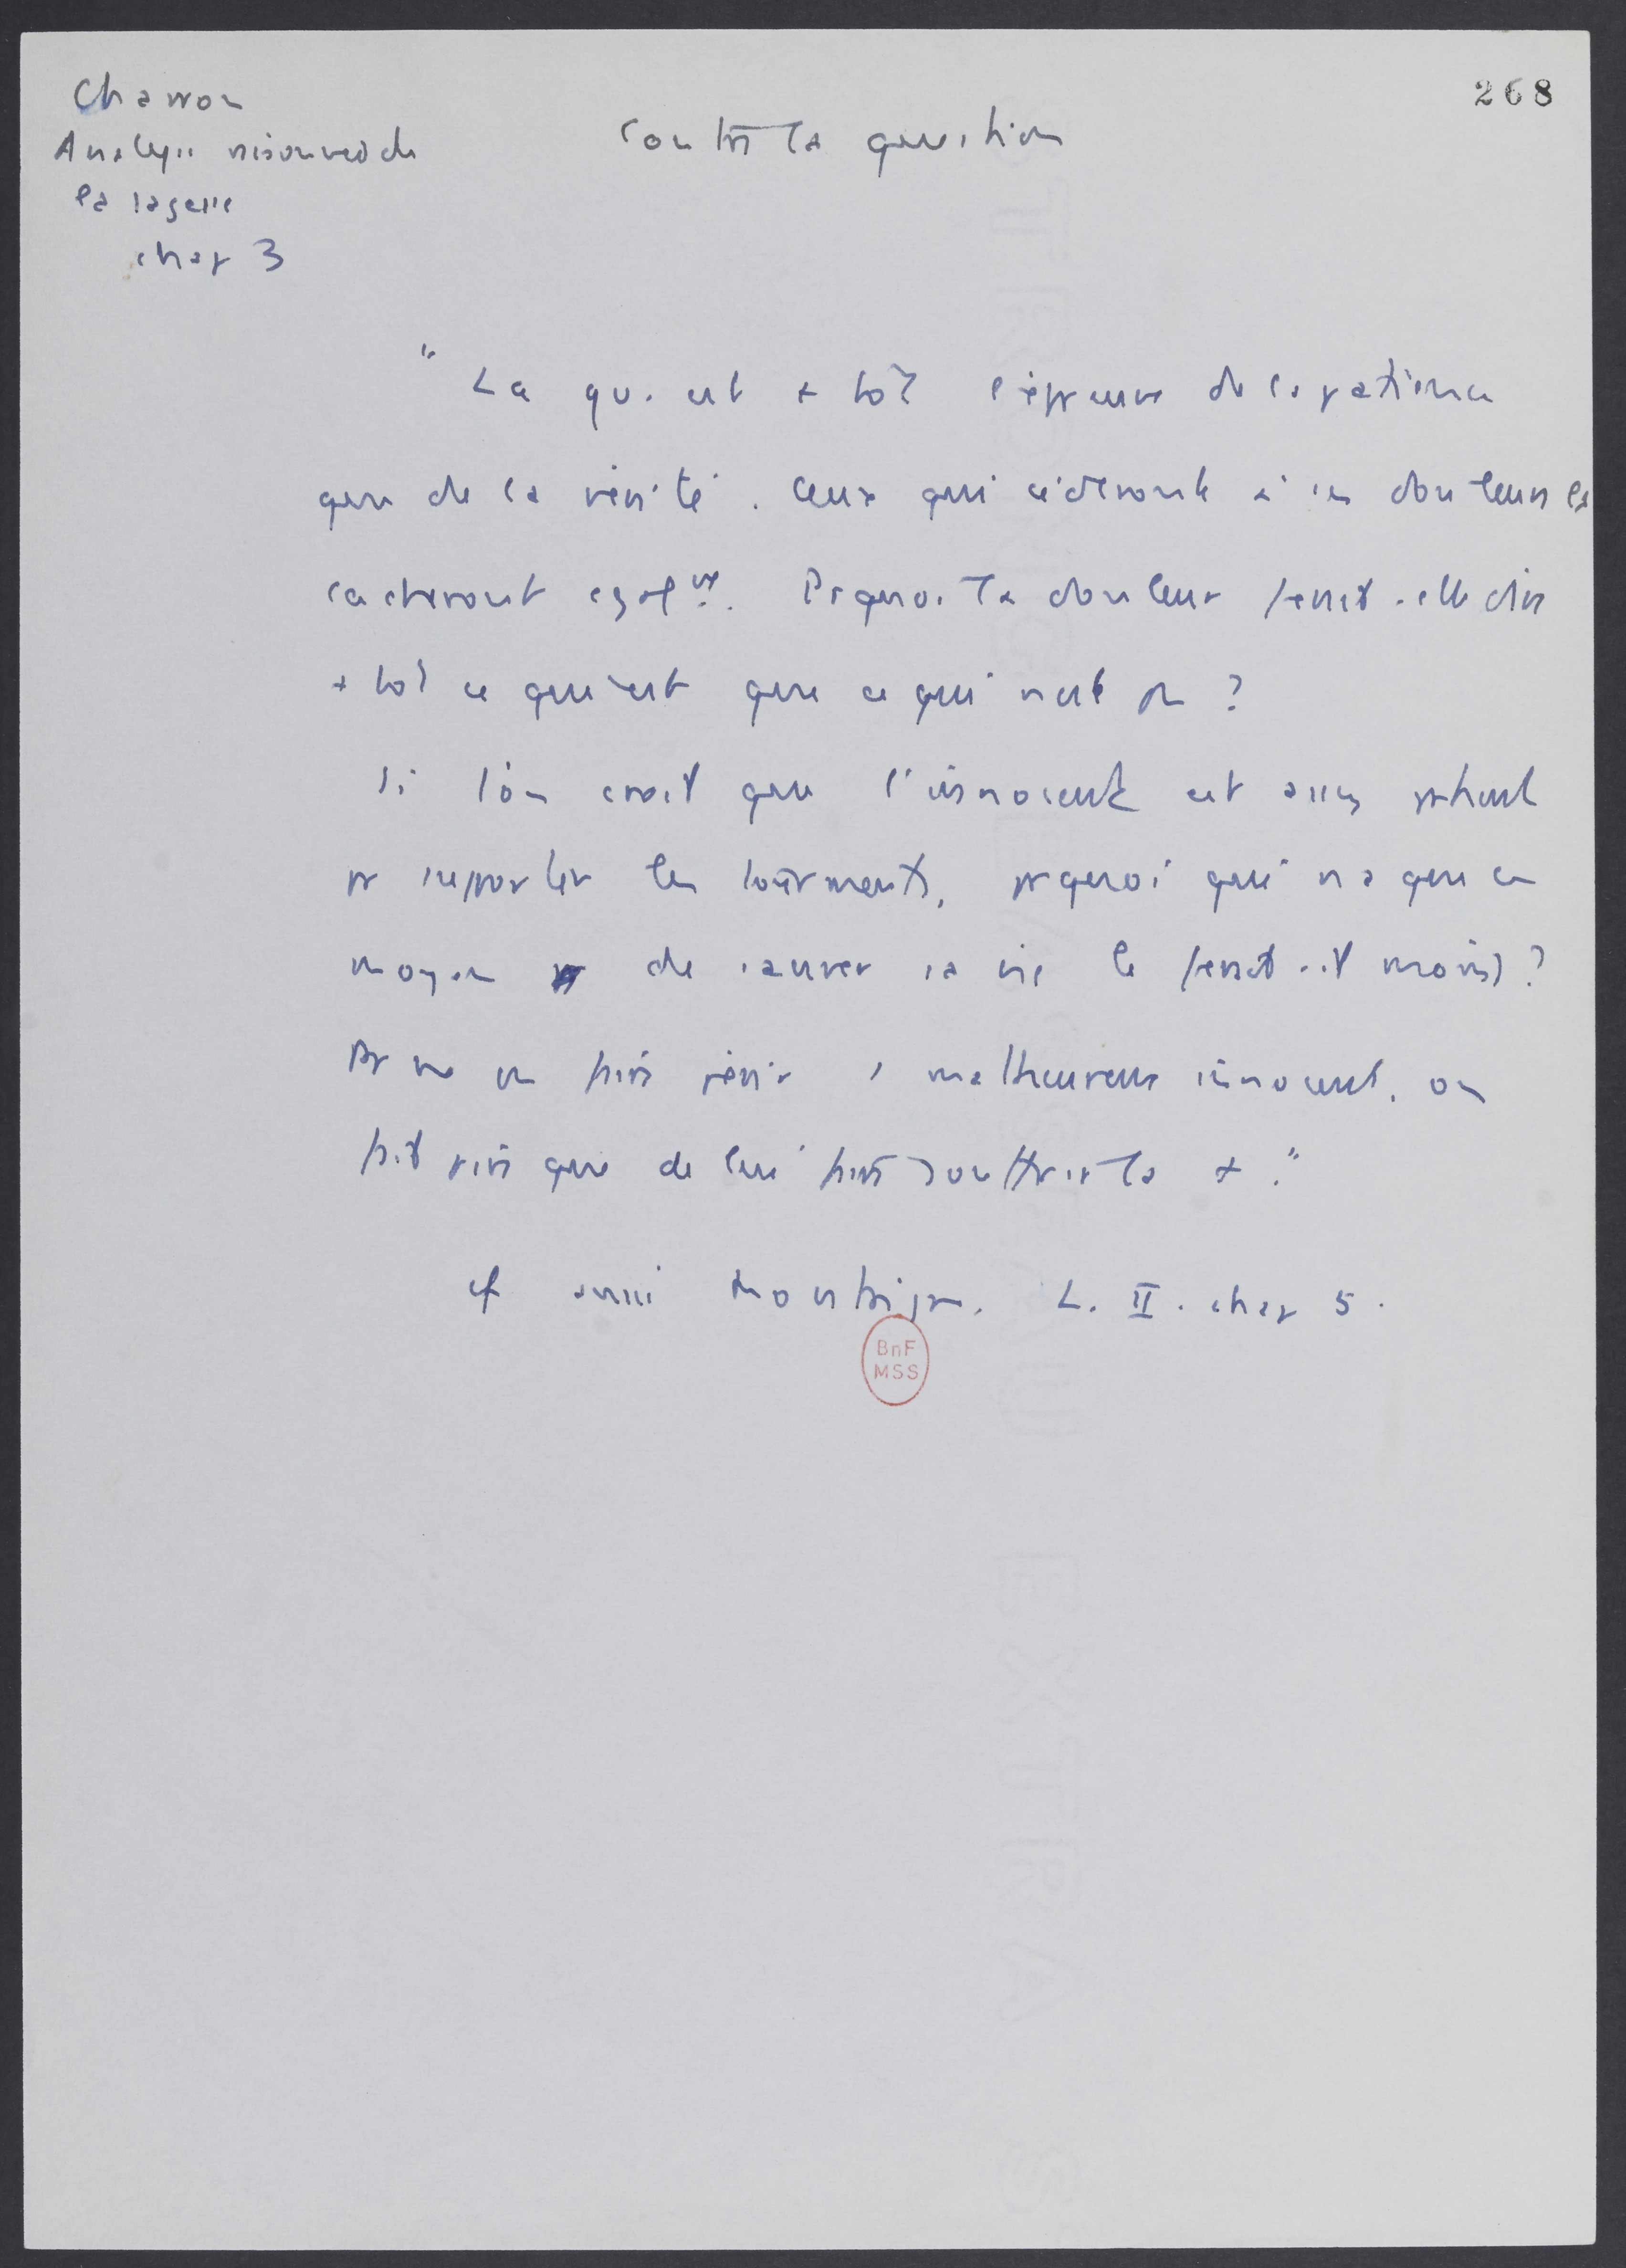 268
Charron
Analyse raisonnée de
la sagesse
chap 3
Contre la question
" La qu. est + tôt l'épreuve de la patience
que de la vérité. Ceux qui céderont à ces douleurs la
cacheront égalmt. Prquoi la douleur ferait-elle dire
+ tôt ce qui est que ce qui n'est pas ?
Si l'on croit que l'innocent est assez patient
pr supporter les tourments, prquoi qui n'a que ce
moyen de sauver sa vie le ferait-il moins ?
Pr ne pas faire périr 1 malheureux innocent, on
fait que de lui faire souffrir la + "
cf aussi Montaigne. L. II. chap 5.
BnF
MSS